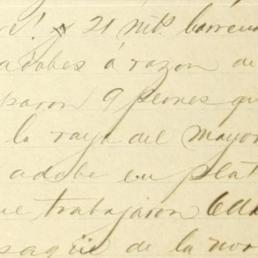 y 21 mts barren
adobes á razon de
paron 9 peones qu
la raya del mayor
adobe en plat
ue trabajaron
de la nor